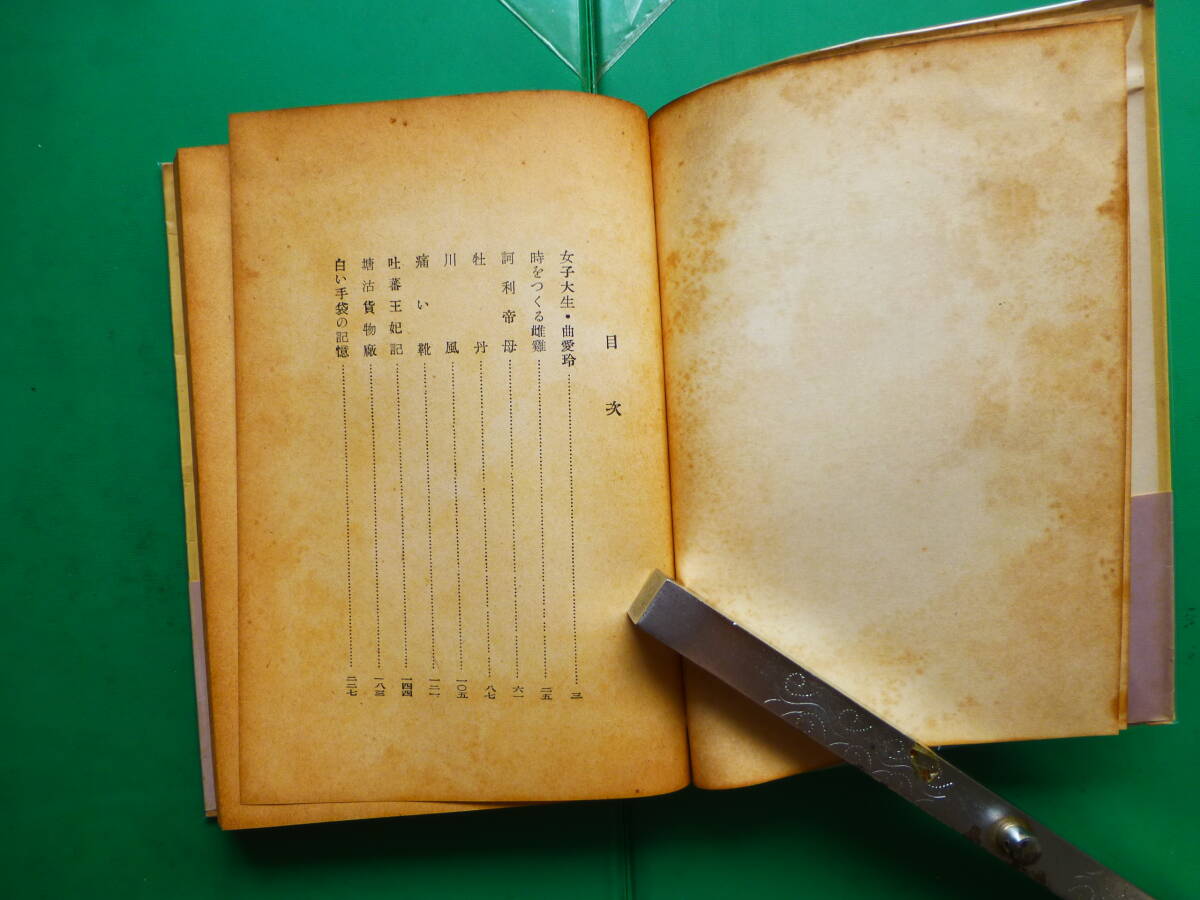 目次
女子大生・曲愛玲……三
時をつくる雌鶏……二五
訶利帝母……六一
牡丹……八七
川風……一〇五
痛い靴……一二一
吐蕃王妃記……一四四
塘沽貨物廠……一八三
白い手袋の記憶……二二七